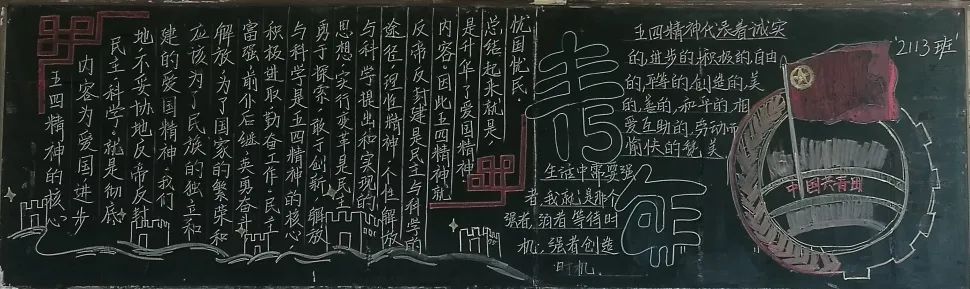 五四精神的核心
内容为爱国、进步
民主、科学。就是彻底
地、不妥协地反帝反封
建的爱国精神。我们
应该为了民族的独立和
解放，为了国家的繁荣和
富强前仆后继英勇奋斗
积极进取，勤奋工作。民主
与科学是五四精神的核心
勇于探索、敢于创新、解放
思想、实行变革是民主
与科学提出和实现的
途径。理性精神，个性解放
反帝反封建是民主与科学的
内容。因此五四精神就
是升华了爱国精神
总结起来就是，
忧国忧民。
青年
生活中常要强
者，我就是那个
强者，弱者等待时
机，强者创造
时机
五四精神代表着诚实
的，进步的，积极的，自由
的，平等的，创造的，美
的，善的，和平的，相
爱互助的，劳动而
愉快的美
2113班
中国共青团